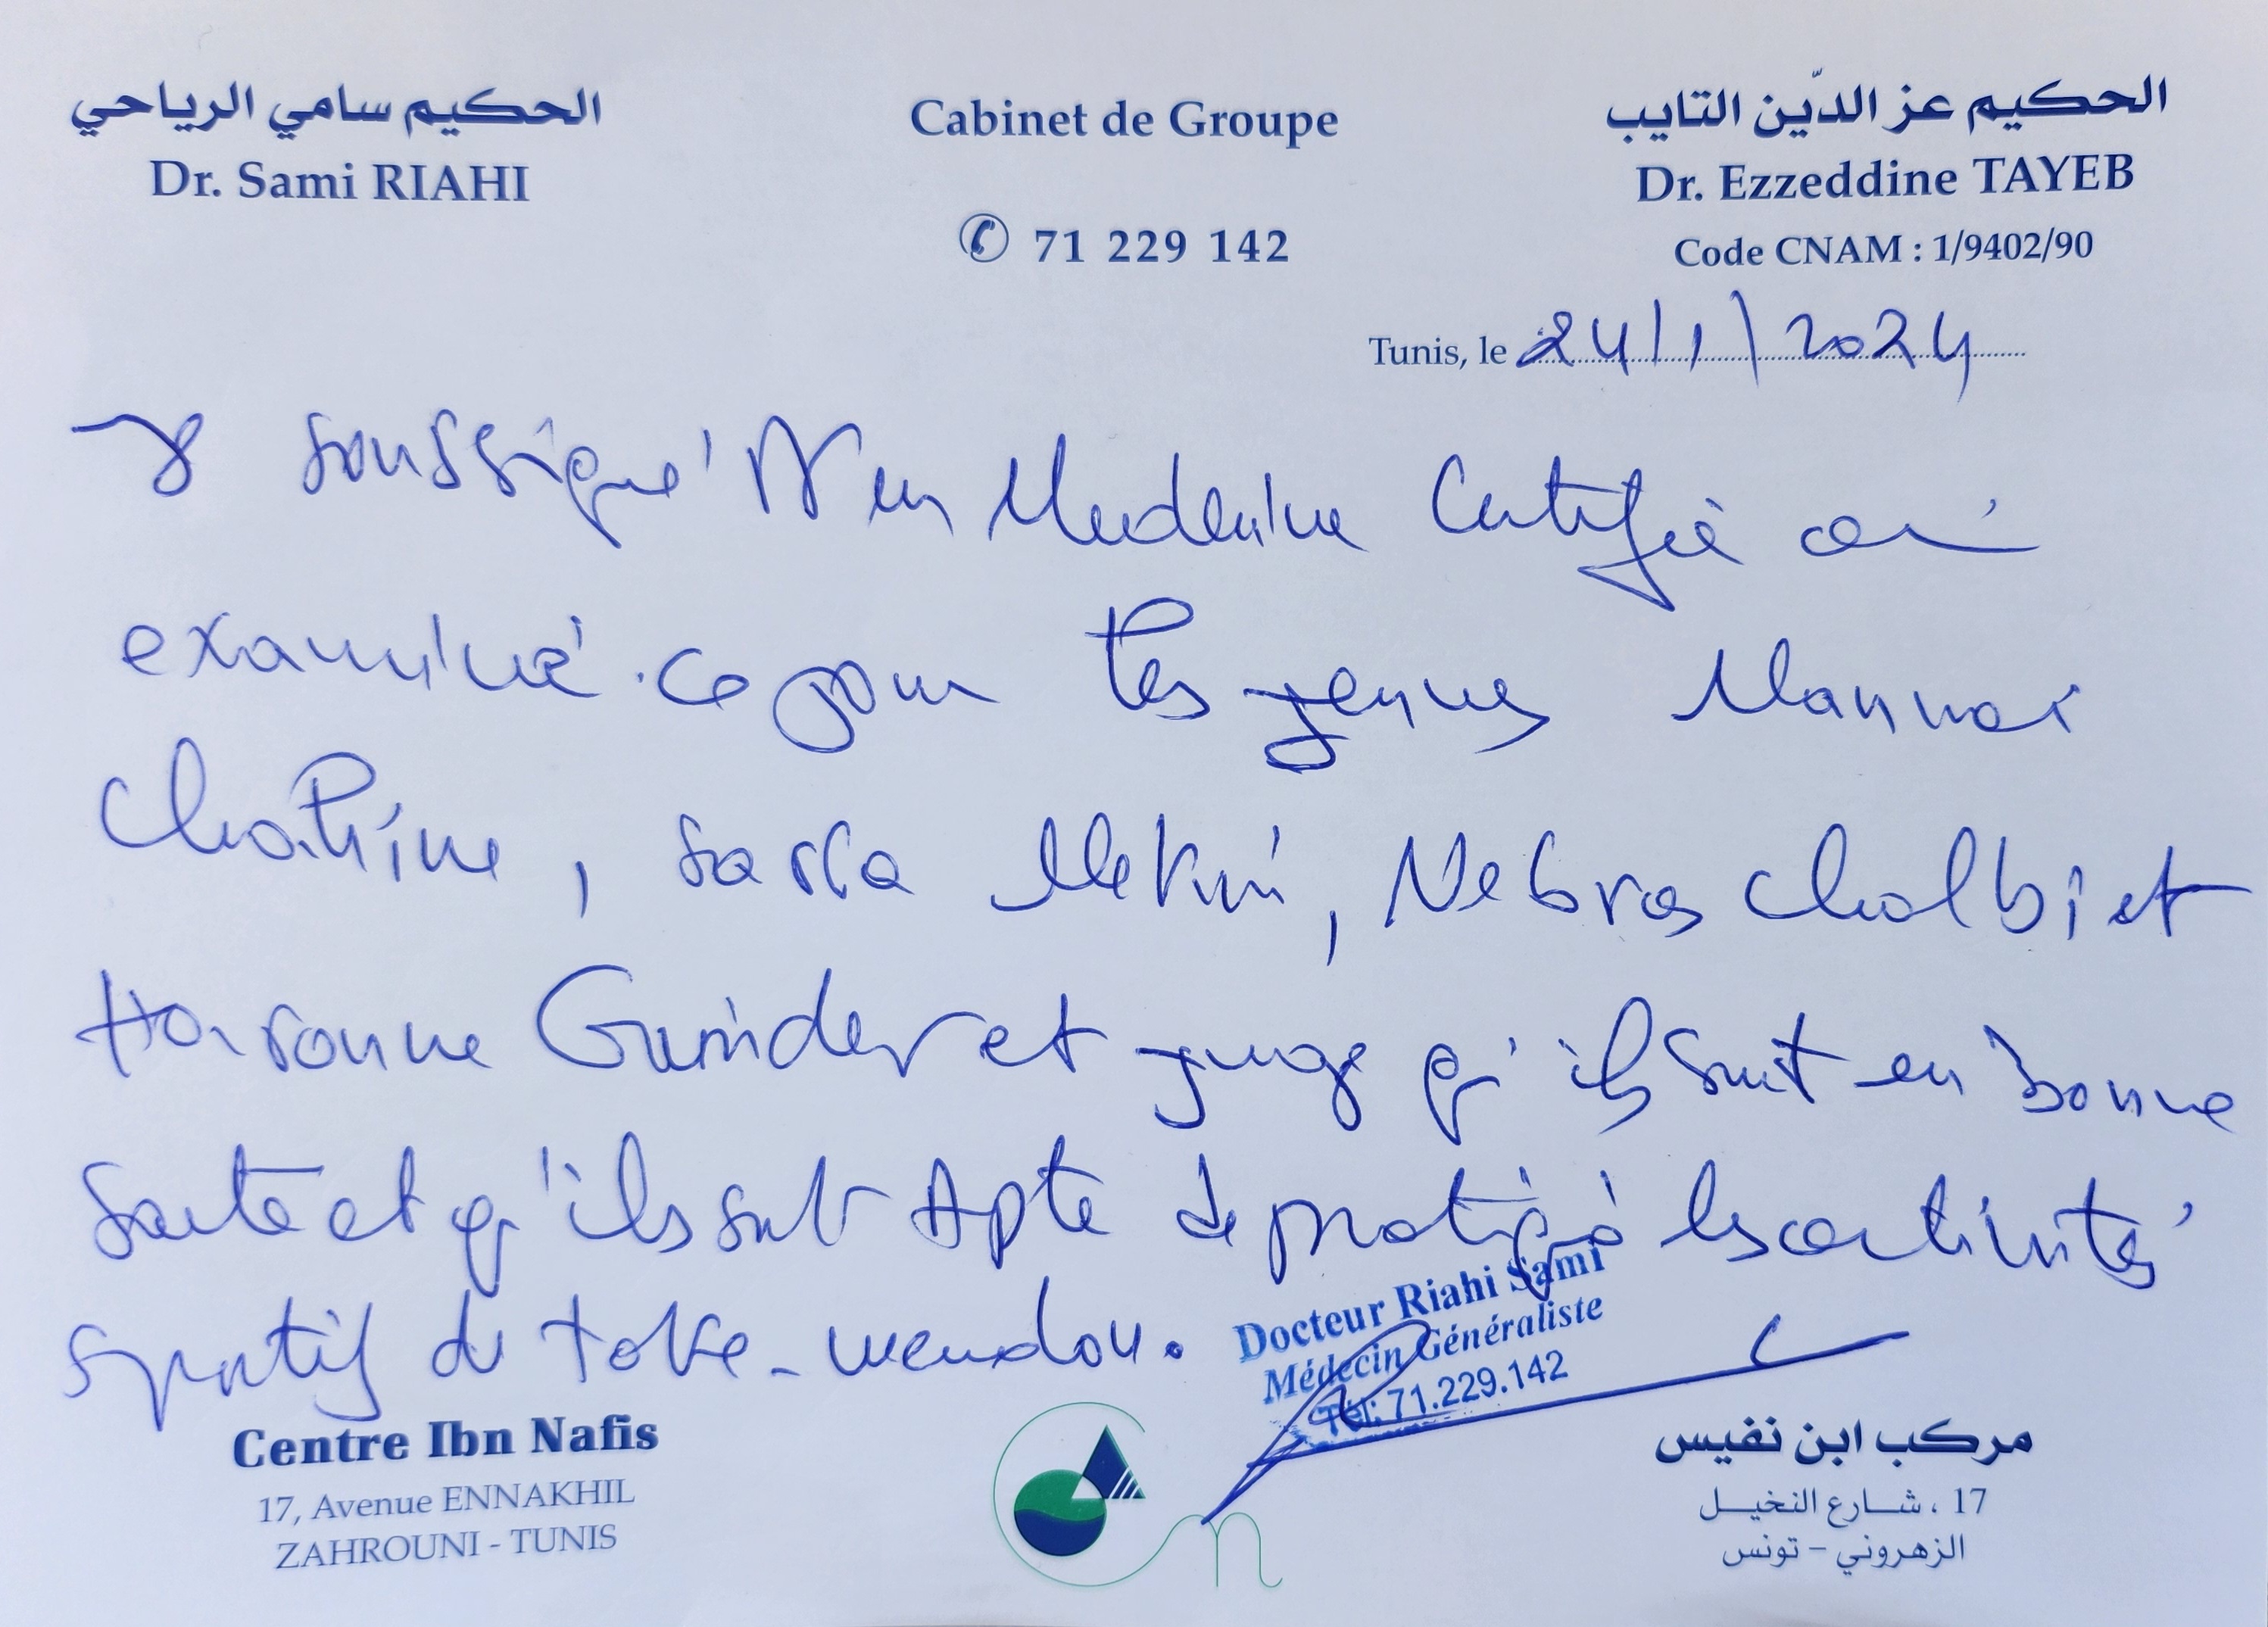 الحكيم سامي الرياحي
Dr. Sami RIAHI
Cabinet de Groupe
71 229 142
الحكيم عز الدّين التايب
Dr. Ezzeddine TAYEB
Code CNAM : 1/9402/90
Tunis, le 24/1/2024
soussigné Dr en Medecine Certifie
examiné ce jour les jeunes Mannai
Chahine, Sarra Mekni, Nebras Chalbi et
Haroune Guinder et juge qu'ils sont en bonne
Sante et qu'ils sont Apte de pratiqué les activités
sportif de
Docteur Riahi Sami
Médecin Généraliste
Tél: 71.229.142
Centre Ibn Nafis
17, Avenue ENNAKHIL
ZAHROUNI - TUNIS
مركب ابن نفيس
17 ، شارع النخيل
الزهروني - تونس